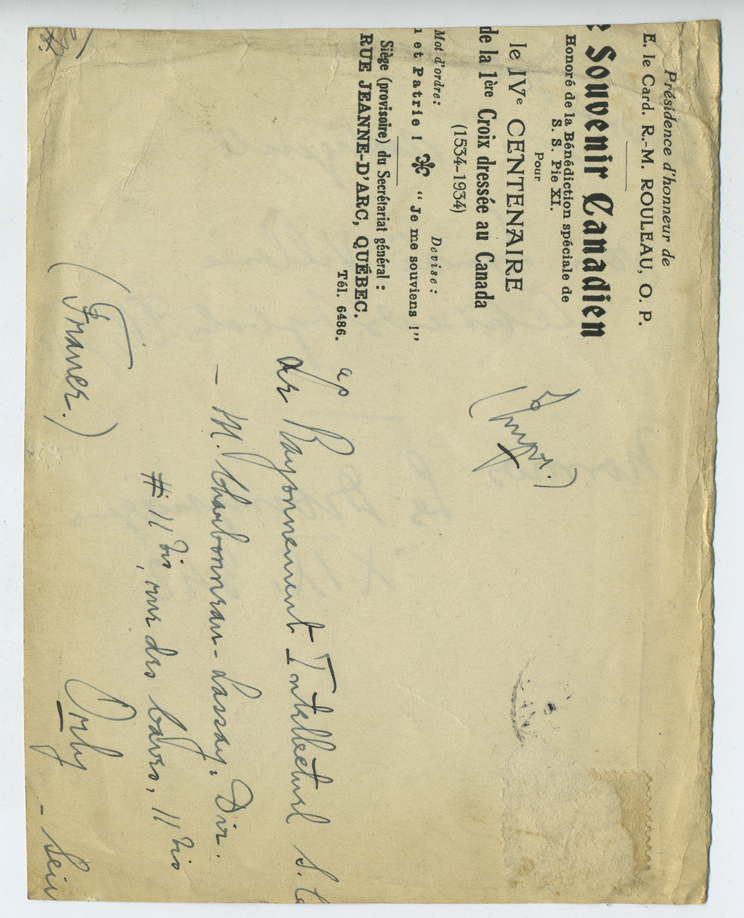 Présidence d'honneur de
E. le Card. R.-M. ROULEAU, O. P.
e Souvenir Canadien
Honoré de la Bénédiction spéciale de
S. S. Pie XI.
Pour
le IVe CENTENAIRE
de la 1ère Croix dressée au Canada
(1534-1934)
Mot d'ordre: Devise:
l et Patrie ! " Je me souviens !"
Siège (provisoire) du Secrétariat général :
RUE JEANNE-D'ARC, QUÉBEC.
Tél. 6486.
(Impr.)
Le Rayonnement Intellectuel
– M. Charbonneau-Lassay, Dir.
# 11 bis, rue des 11 bis
Orly – Sein
(France.)